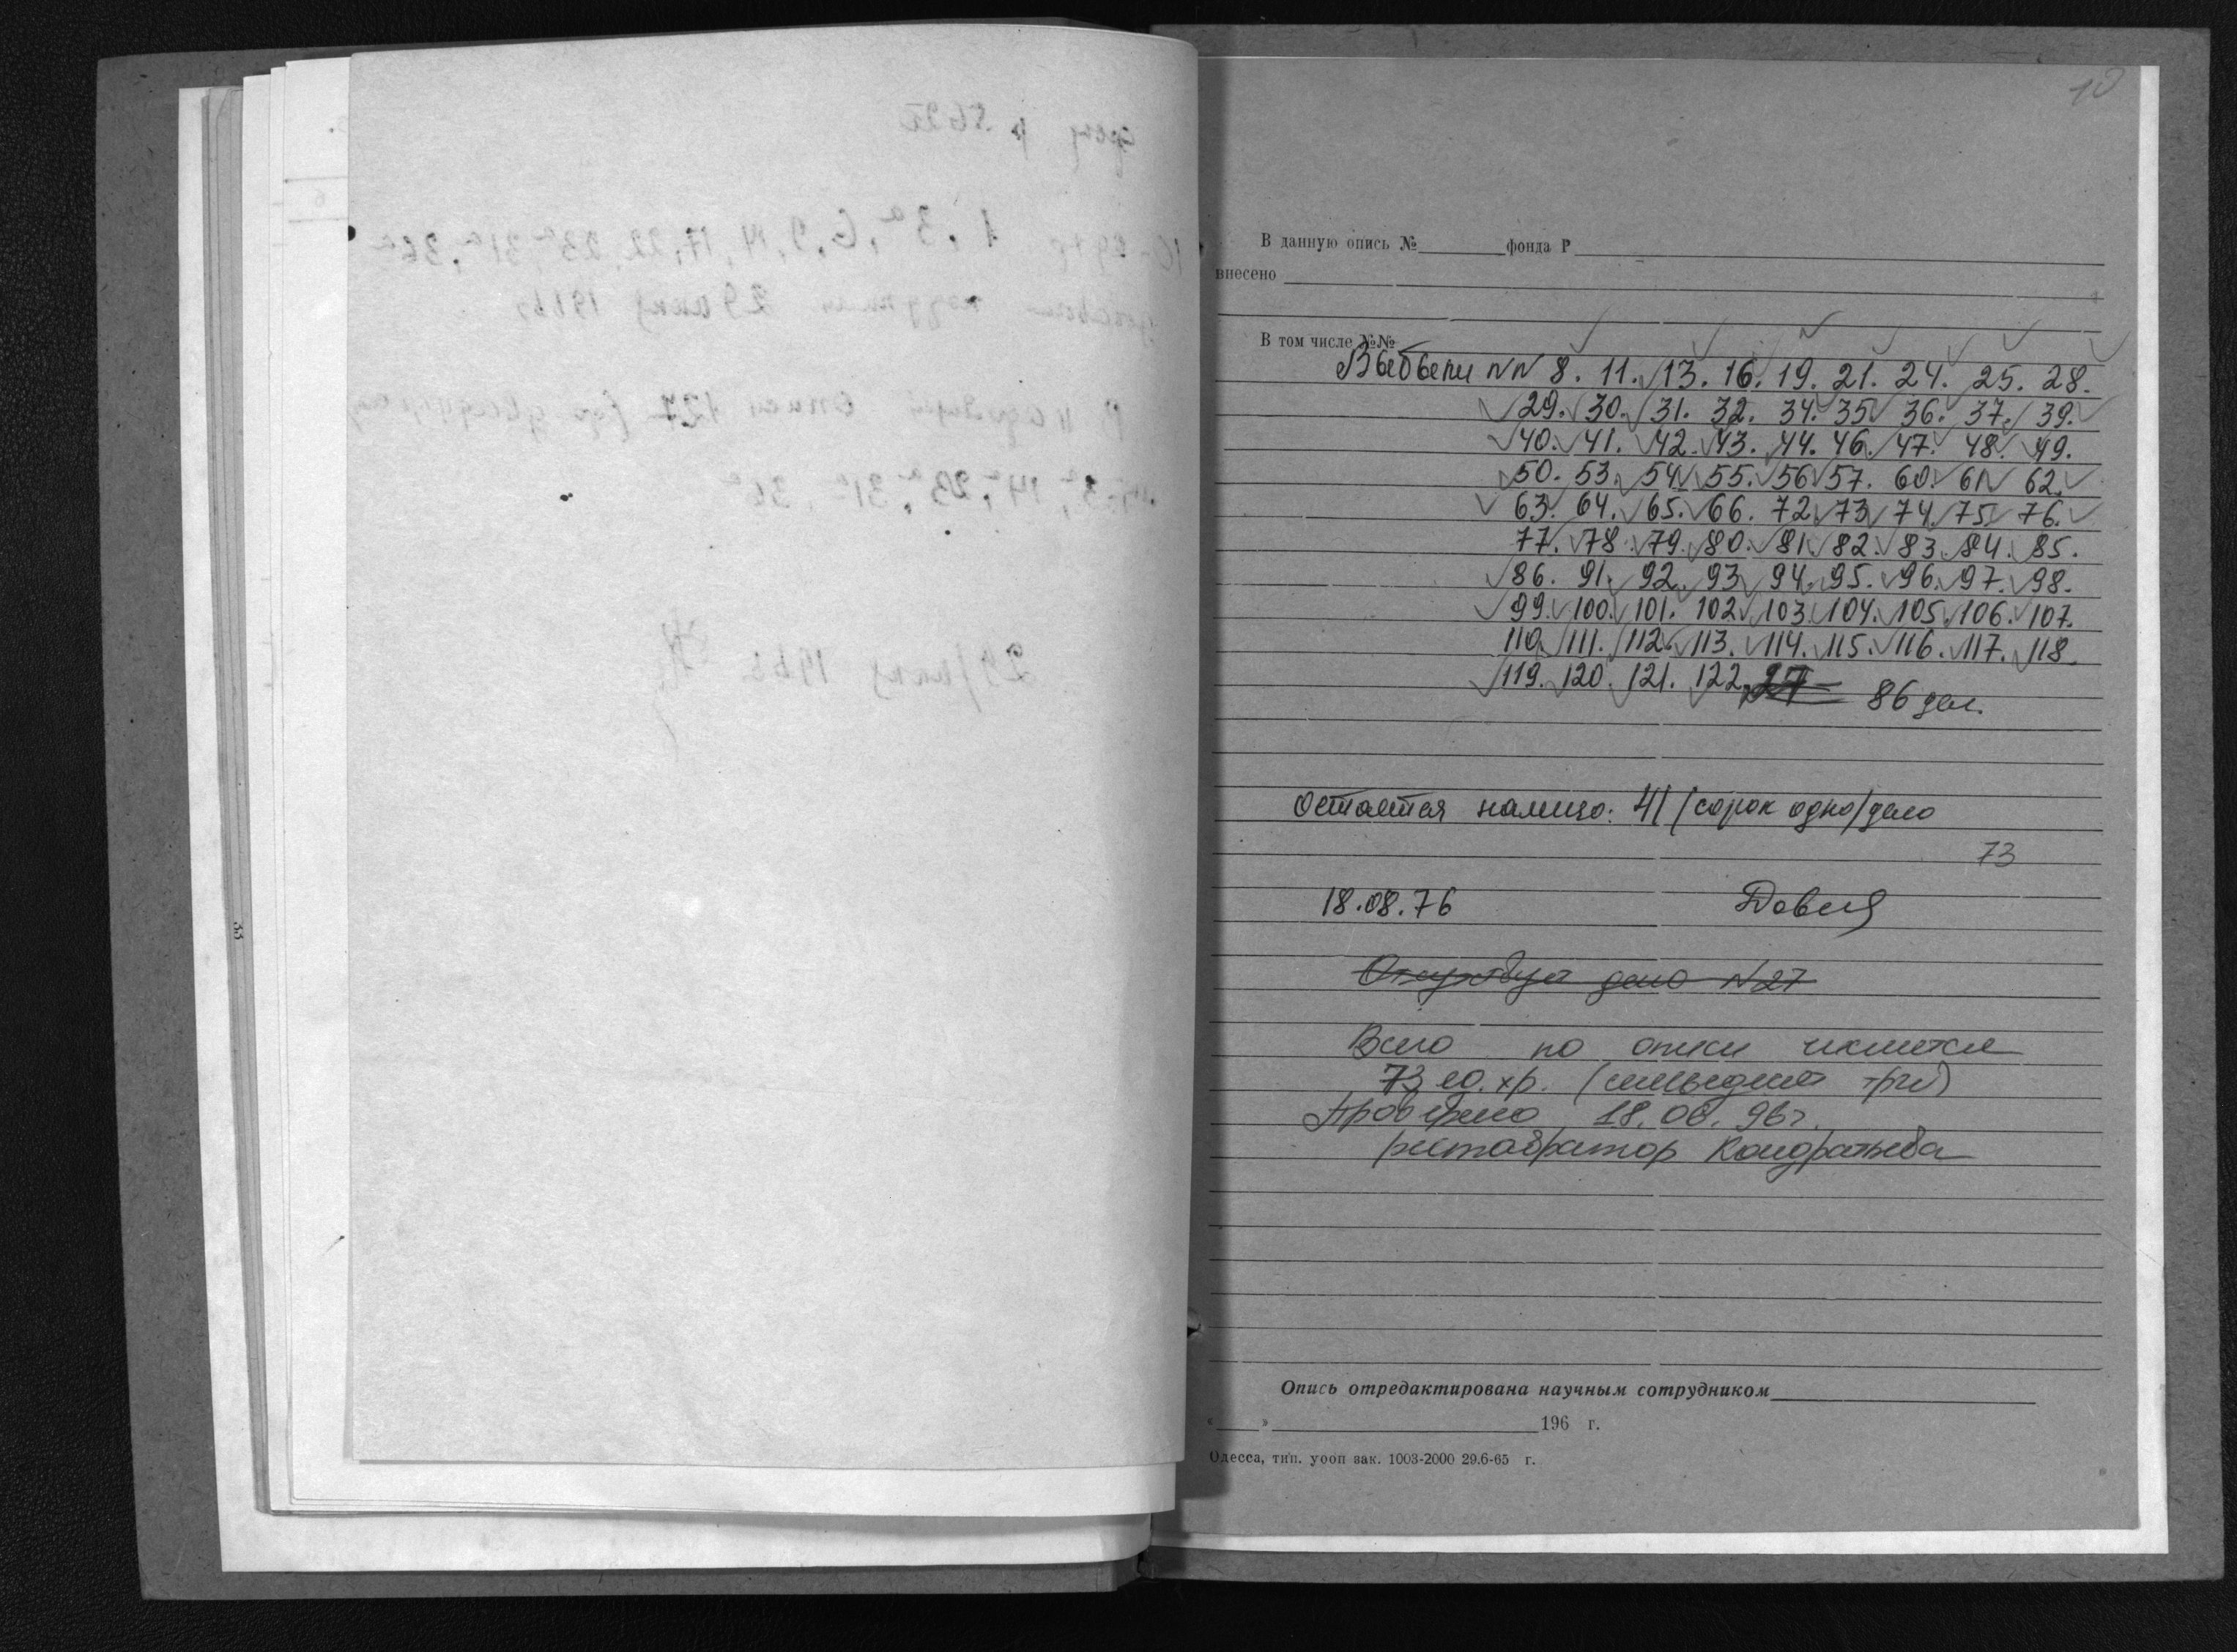 10
В данную опись № фонда Р
внесено
В том числе №№
Выбыли NN 8. 11. 13. 16. 19. 21. 24. 25. 28.
29. 30. 31. 32. 34. 35 36. 37. 39.
40. 41. 42. 43. 44. 46. 47. 48. 49.
50. 53. 54. 55. 56 57. 60. 61 62.
63. 64. 65. 66. 72. 73 74. 75. 76.
77. 78. 79. 80. 81. 82. 83. 84. 85.
86. 91. 92. 93 94. 95. 96. 97. 98.
99. 100. 101. 102. 103. 104. 105. 106. 107.
110. 111. 112. 113. 114. 115. 116. 117. 118.
119. 120. 121. 122. 27
86 дел.
Остается налицо: 41 /сорок одно/ дело
73
18.08.76
Отсутствует дело N 27
Всего по описи числится
73 ед. хр. (семьдесят три)
Проверено 18.06.96г.
реставратор Кондратьева
Опись отредактирована научным сотрудником
« » 196 г.
Одесса, тип. уооп зак. 1003-2000 29.6-65 г.
33
6